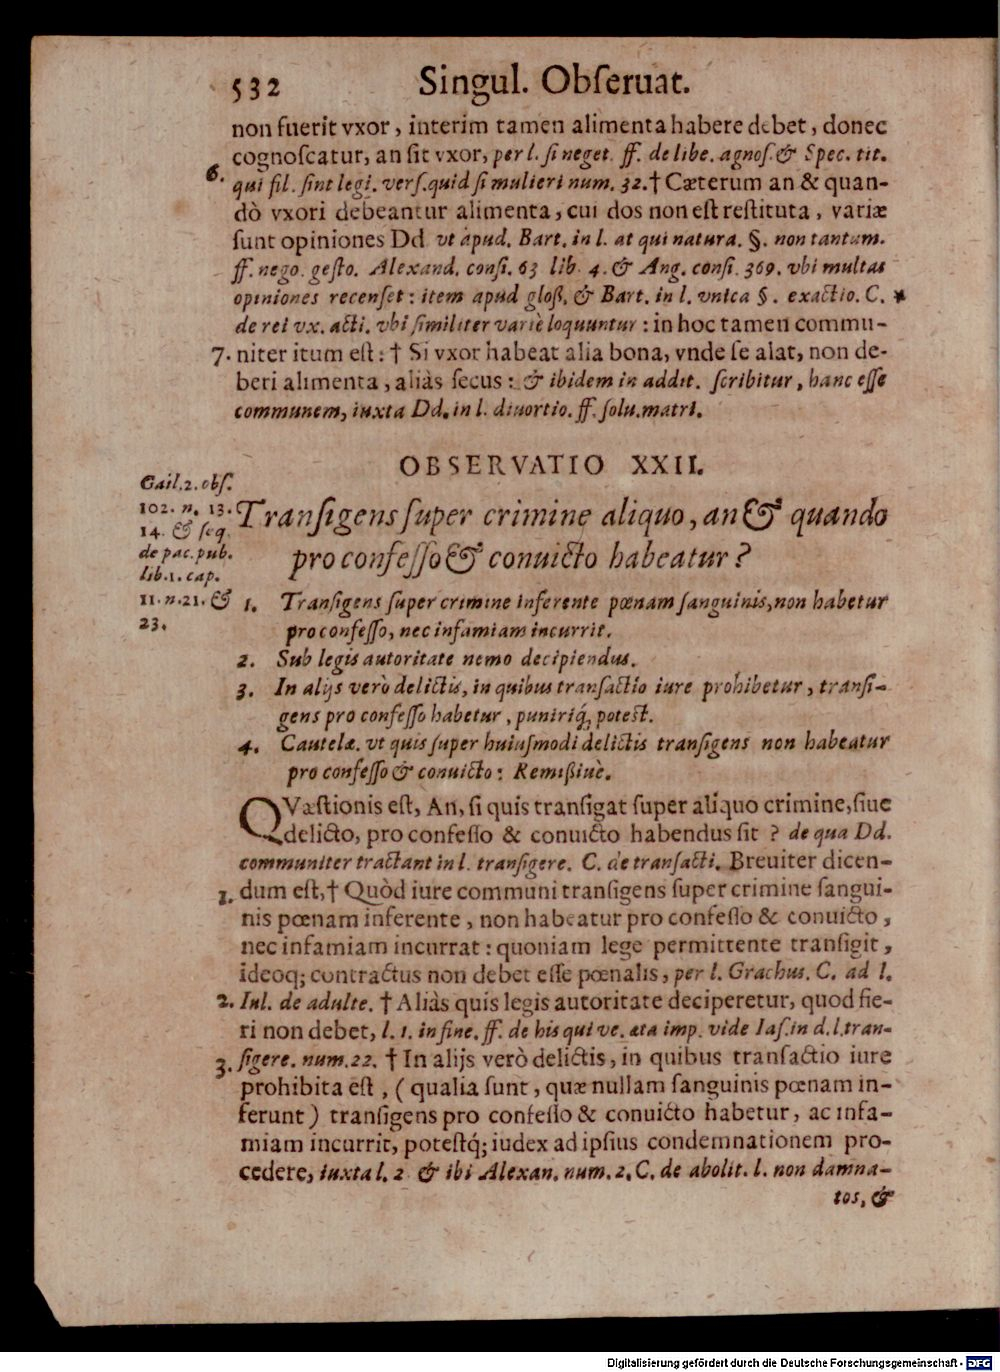 532 Singul. Obſeruat.
non fuerit vxor, interim tamen alimenta habere debet, donec
cognoſcatur, an ſit vxor, per l. ſi neget. ff. de libe. agnoſ. & Spec. tit.
6. qui fil. ſint legi. verſ. quid ſi mulieri num. 32. † Cæterum an & quan-
dò vxori debeantur alimenta, cui dos non eſt reſtituta, variæ
ſunt opiniones Dd vt apud. Bart. in l. at qui natura. §. non tantum.
ff. nego. geſto. Alexand. conſi. 63 lib. 4. & Ang. conſi. 369. vbi multas
opiniones recenſet: item apud gloß. & Bart. in l. vnica §. exactio. C. *
de rei vx. acti. vbi ſimiliter variè loquuntur: in hoc tamen commu-
7. niter itum eſt: † Si vxor habeat alia bona, vnde ſe alat, non de-
beri alimenta, aliàs ſecus: & ibidem in addit. ſcribitur, hanc eſſe
communem, iuxta Dd. in l. diuortio. ff. ſolu. matri.
OBSERVATIO XXII.
Gail. 2. obſ.
102. n. 13.
14. & ſeq.
de pac. pub.
lib. 1. cap.
11. n. 21. &
23.
Tranſigens ſuper crimine aliquo, an & quando
pro confeſſo & conuicto habeatur?
1. Tranſigens ſuper crimine inferente pœnam ſanguinis, non habetur
pro confeſſo, nec infamiam incurrit.
2. Sub legis autoritate nemo decipiendus.
3. In alijs verò delictis, in quibus tranſactio iure prohibetur, tranſi-
gens pro confeſſo habetur, puniriq́; poteſt.
4. Cautelæ. vt quis ſuper huiuſmodi delictis tranſigens non habeatur
pro confeſſo & conuicto: Remißiuè.
QVæſtionis eſt, An, ſi quis tranſigat ſuper aliquo crimine, ſiue
delicto, pro confeſſo & conuicto habendus ſit? de qua Dd.
communiter tractant in l. tranſigere. C. de tranſacti. Breuiter dicen-
1. dum eſt, † Quòd iure communi tranſigens ſuper crimine ſangui-
nis pœnam inferente, non habeatur pro confeſſo & conuicto,
nec infamiam incurrat: quoniam lege permittente tranſigit,
ideoq; contractus non debet eſſe pœnalis, per l. Grachus. C. ad l.
2. Iul. de adulte. † Aliàs quis legis autoritate deciperetur, quod fie-
ri non debet, l. 1. in fine. ff. de his qui ve. æta imp. vide Iaſ. in d. l. tran-
3. ſigere. num. 22. † In alijs verò delictis, in quibus tranſactio iure
prohibita eſt, (qualia ſunt, quæ nullam ſanguinis pœnam in-
ferunt) tranſigens pro confeſſo & conuicto habetur, ac infa-
miam incurrit, poteſtq́; iudex ad ipſius condemnationem pro-
cedere, iuxta l. 2 & ibi Alexan. num. 2. C. de abolit. l. non damna-
tos, &
Digitalisierung gefördert durch die Deutsche Forschungsgemeinschaft - DFG